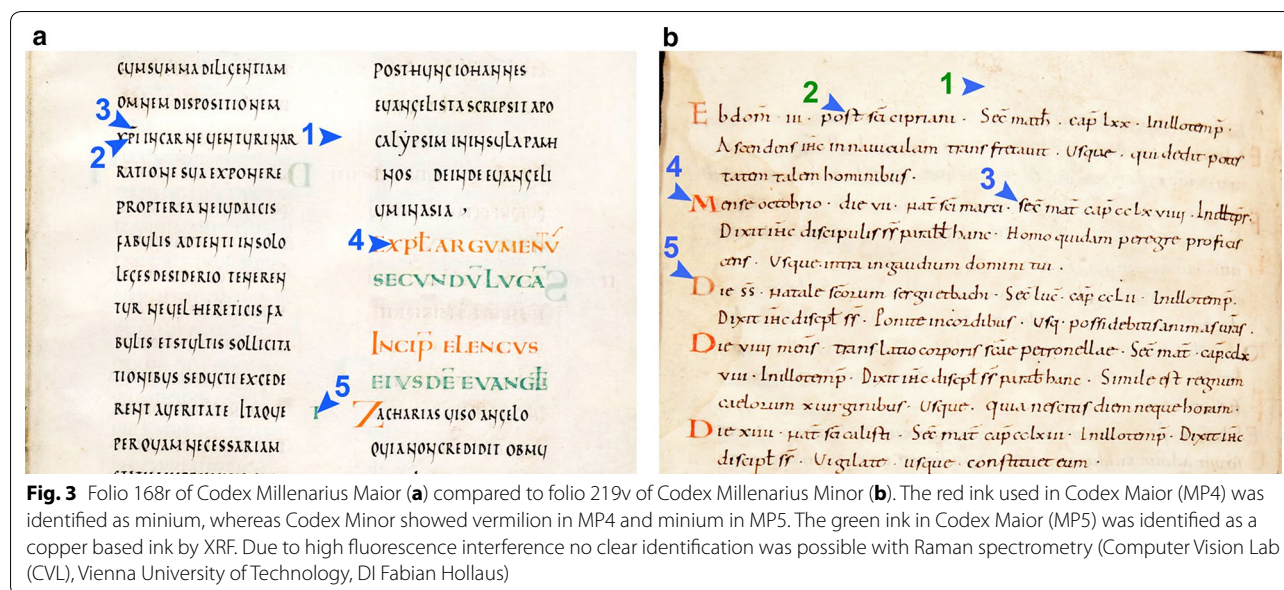 a
CUM SUMMA DILIGENTIAM
OMNEM DISPOSITIONEM
XP̄I INCARNE VENTURI NAR
RATIONE SUA EXPONERE
PROPTEREA NE IUDAICIS
FABULIS ADTENTI IN SOLO
LEGES DESIDERIO TENEREN
TUR NEVEL HERETICIS FA
BULIS ET STULTIS SOLLICITA
TIONIBUS SEDUCTI EXCEDE
RENT AVERITATE ITAQUE
PERQUAM NECESSARIAM
3
2
POST HUNC IOHANNES
EVANGELISTA SCRIPSIT APO
CALYPSIM IN INSULA PATH
NOS DEINDE EVANGELI
UM IN ASIA
EXPL̄ ARGUMENTŪ
SECVNDV̄ LVCĀ
INCIP̄ ELENCVS
EIVSDĒ EVANGL̄I
ZACHARIAS VISO ANGELO
QUIA NON CREDIDIT OBMU
1
4
5
b
1
2
Ebdom̄ · III · post sc̄i cipriani · Sec̄ math̄ · cap̄ lxx · In illo temp̄ ·
Ascendens ih̄c in nauiculam transfretauit · Usque · qui dedit potes
tatem talem hominibus ·
4
3
Mense octobrio · die VII · nat̄ sc̄i marci · sec̄ mat̄ cap̄ cclxviiii ·
Dixit ih̄c discipulis s̄s parabl̄ hanc · Homo quidam peregre profics
cens · Usque · intra in gaudium domini tui ·
5
Die s̄s · natale sc̄orum sergii et bachi · Sec̄ luc̄ · cap̄ ccLii · In illo temp̄ ·
Dixit ih̄c discipl̄ s̄s · Ponite in cordibus · Usq · possidebitis animas ur̄as ·
Die viiii mens̄ · translatio corporis sc̄ae petronellae · Sec̄ mat̄ · cap̄ cclx
viii · In illo temp̄ · Dixit ih̄c discipl̄ s̄s parabl̄ hanc · Simile est regnum
caelorum x uirginibus · Usque · Quia nescitis diem neque horam ·
Die xiiii · nat̄ sc̄i calisti · Sec̄ mat̄ cap̄ cclxiii · In illo temp̄ · Dixit ih̄c
discipl̄ s̄s · Uigilate · usque · constituet eum ·
Fig. 3 Folio 168r of Codex Millenarius Maior (a) compared to folio 219v of Codex Millenarius Minor (b). The red ink used in Codex Maior (MP4) was
identified as minium, whereas Codex Minor showed vermilion in MP4 and minium in MP5. The green ink in Codex Maior (MP5) was identified as a
copper based ink by XRF. Due to high fluorescence interference no clear identification was possible with Raman spectrometry (Computer Vision Lab
(CVL), Vienna University of Technology, DI Fabian Hollaus)